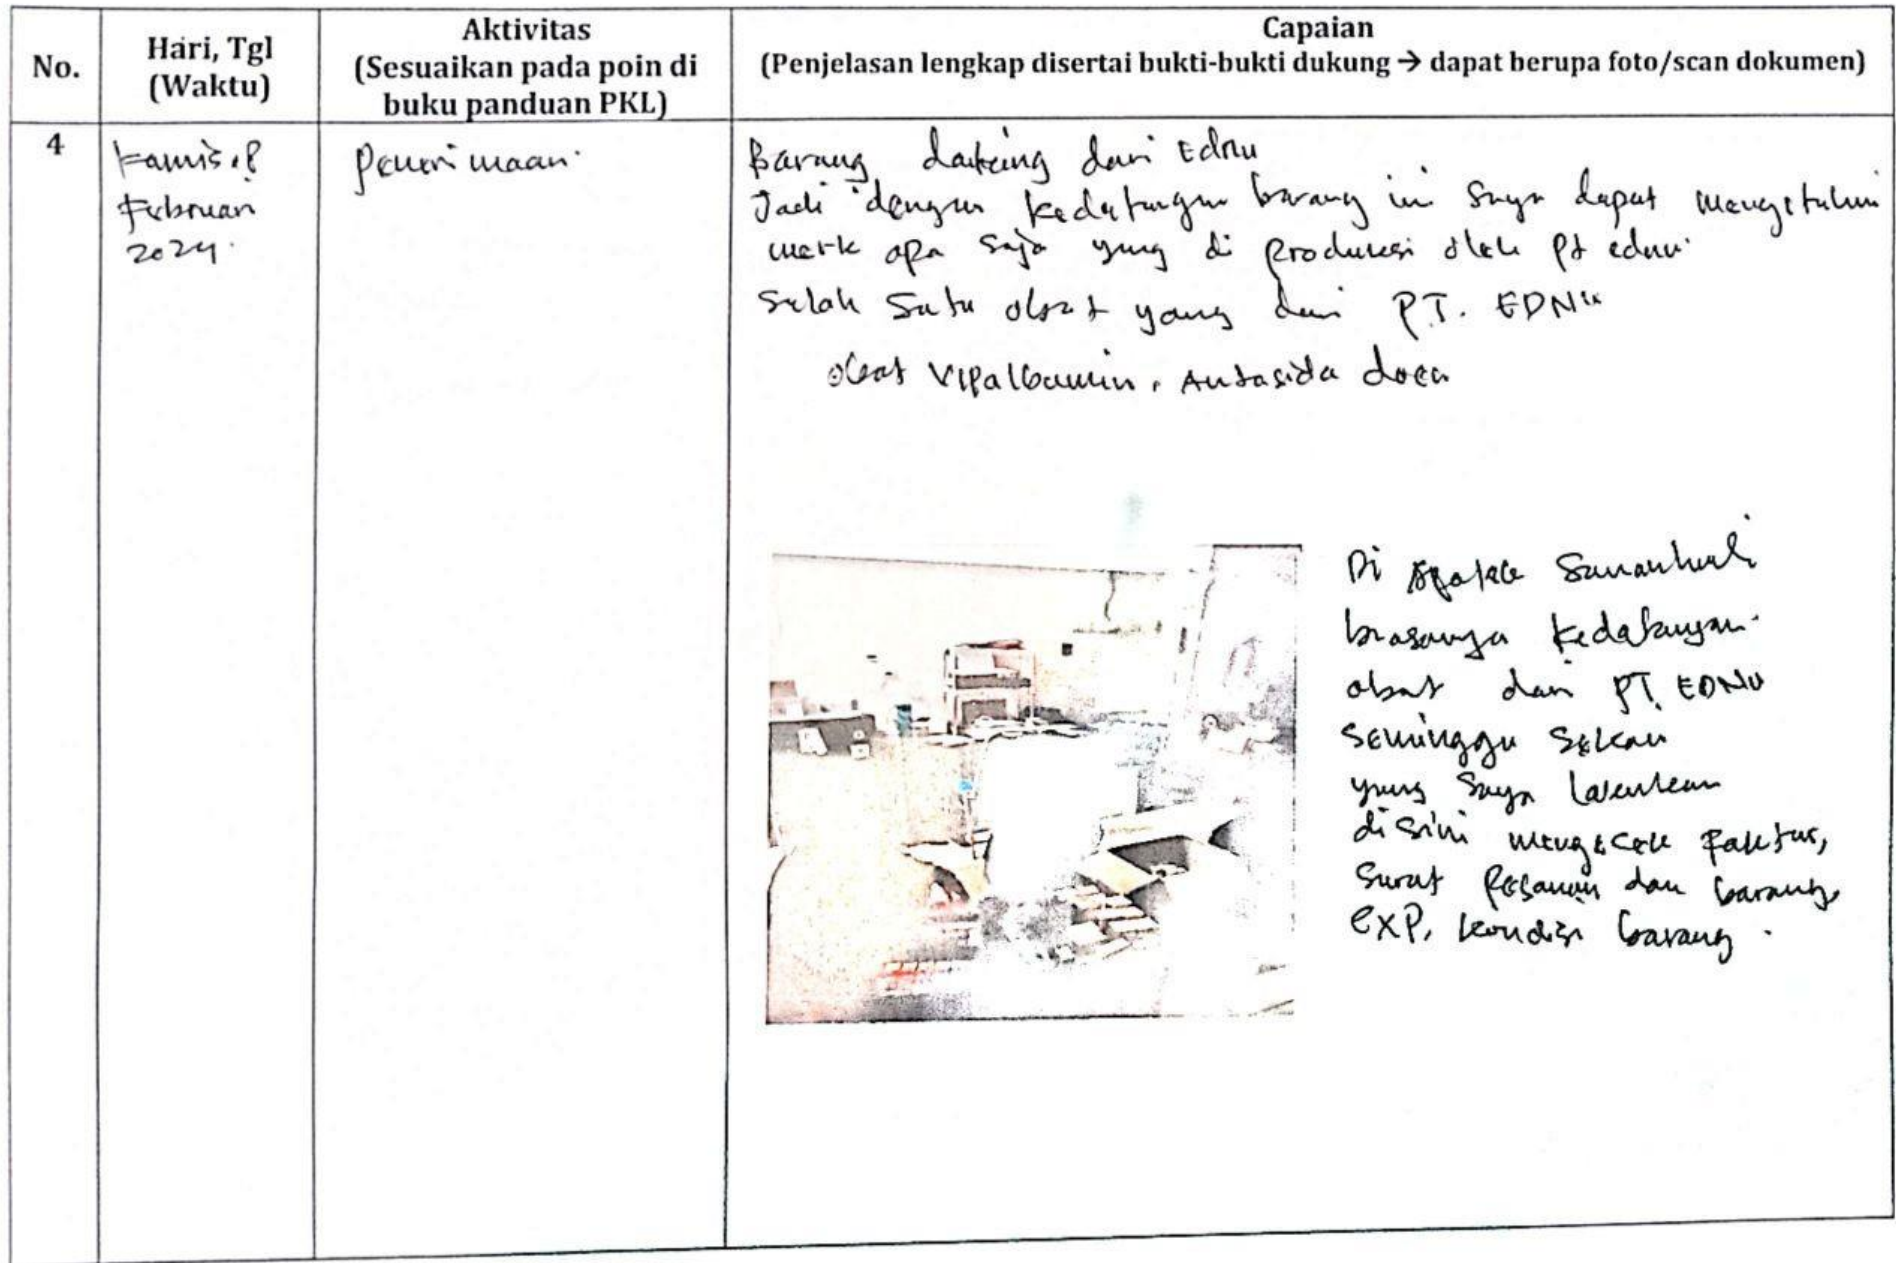 No.
Hari, Tgl
(Waktu)
Aktivitas
(Sesuaikan pada poin di
buku panduan PKL)
Capaian
(Penjelasan lengkap disertai bukti-bukti dukung → dapat berupa foto/scan dokumen)
4
Kamis, 8
Februari
2024.
Penerimaan.
Barang datang dari Ednu
Jadi dengan kedatangan barang ini saya dapat mengetahui
merk apa saja yang di produksi oleh Pt ednu.
Salah satu obat yang dari PT. EDNU
obat Vipalbumin, Antasida doen
Di Apotek
biasanya kedatangan.
obat dari PT. EDNU
seminggu sekali
yang saya lakukan
disini mengecek Faktur,
Surat Pesanan dan barang,
EXP, kondisi barang.